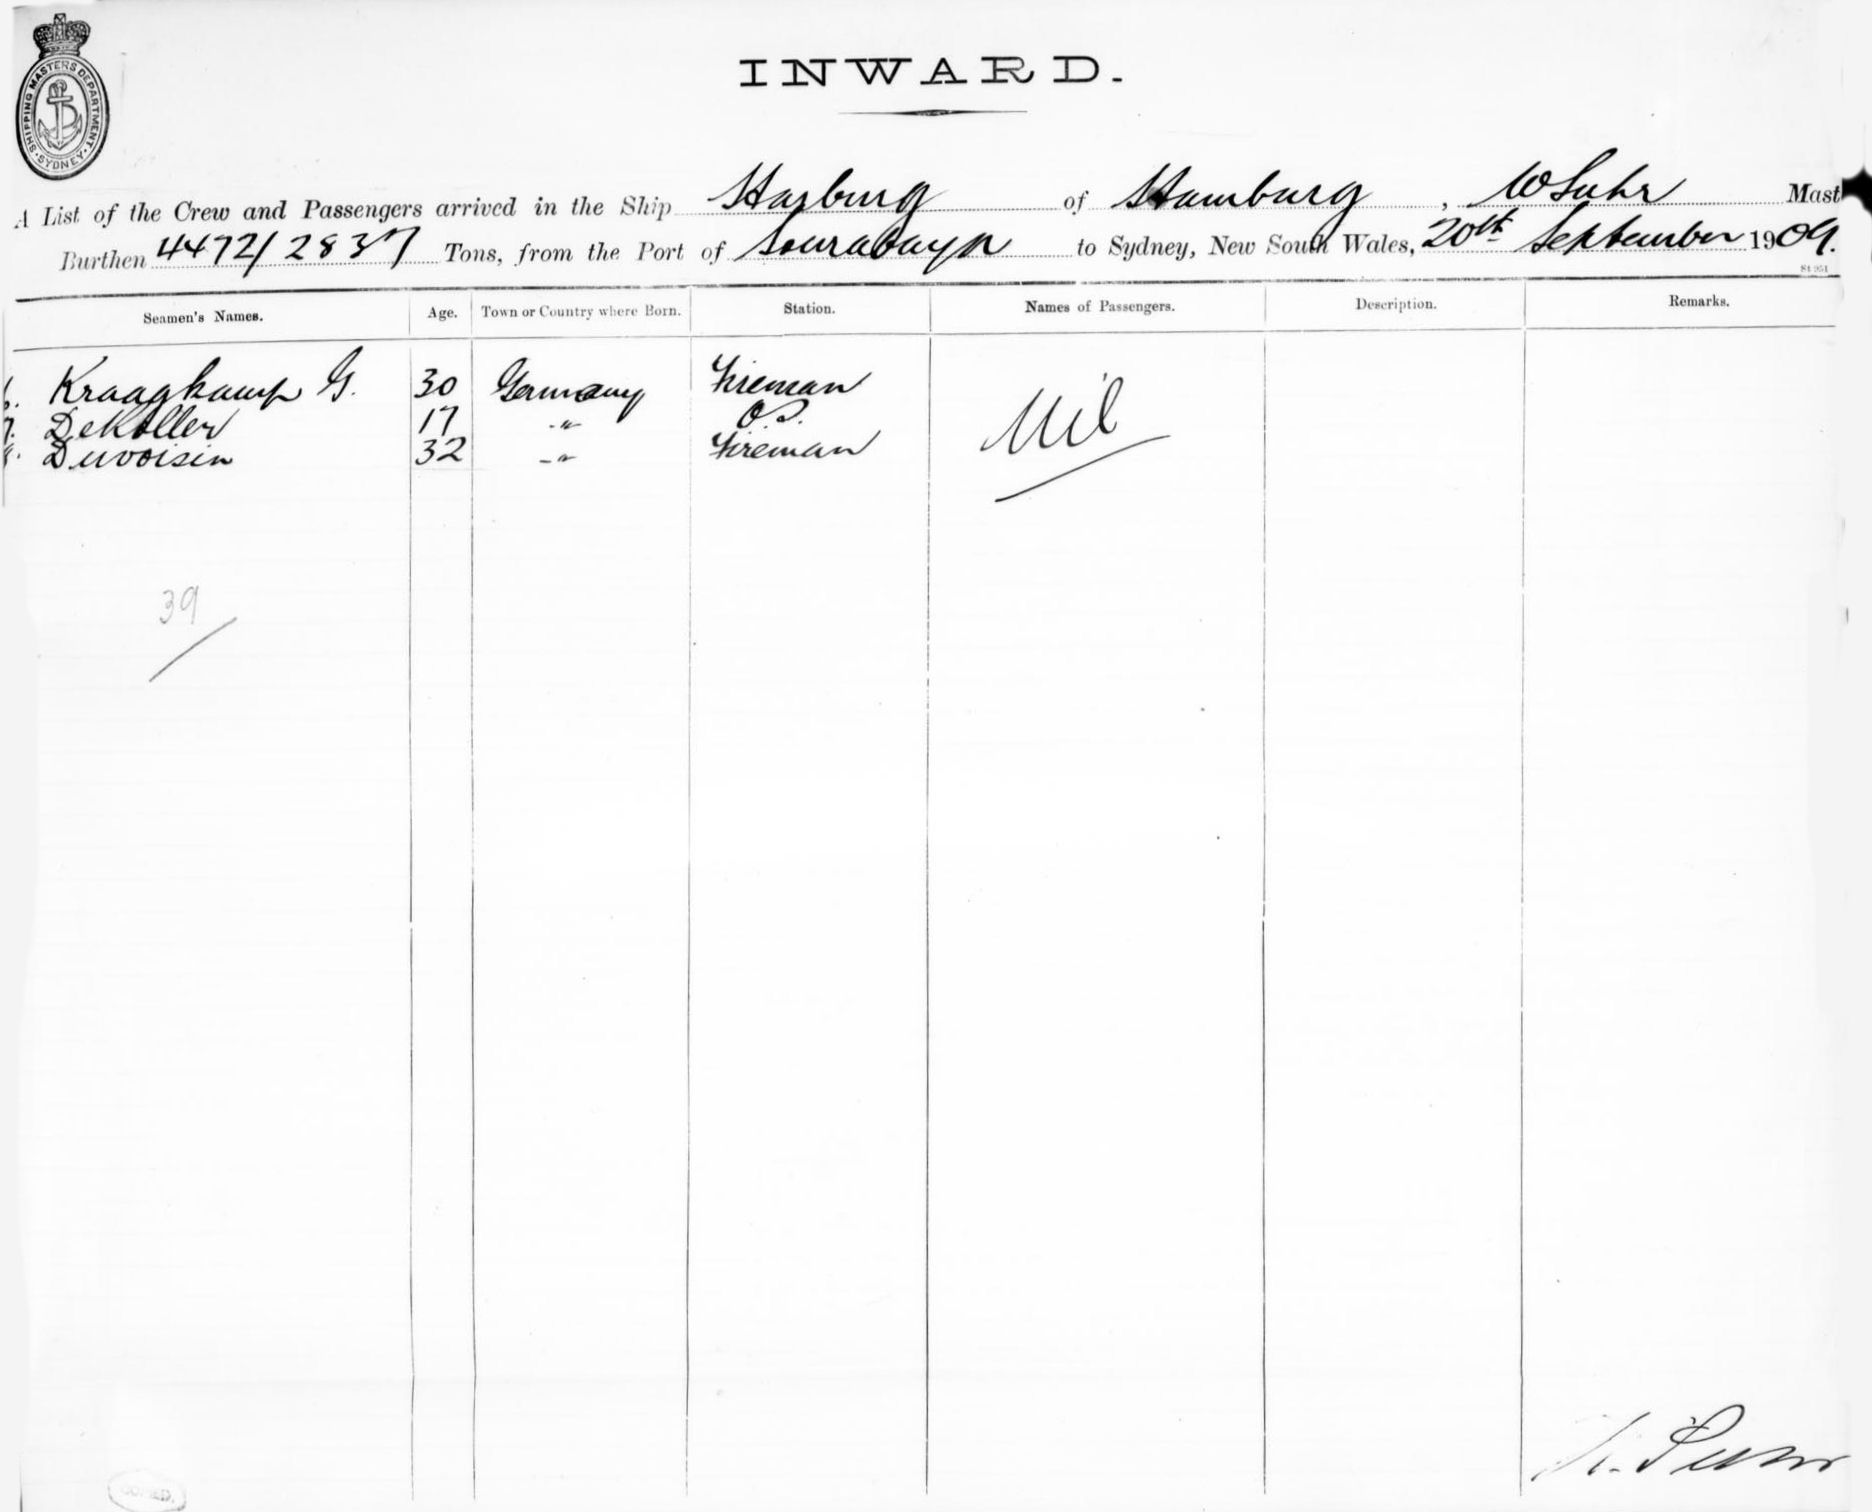 SHIPPING MASTERS DEPARTMENT · SYDNEY ·
INWARD.
A List of the Crew and Passengers arrived in the Ship Harburg of Hamburg, W Suhr Mast
Burthen 4472/2837 Tons, from the Port of Sourabaya to Sydney, New South Wales, 20th September 1909.
Seamen's Names. Age. Town or Country where Born. Station. Names of Passengers. Description. Remarks.
Kraagkamp G. 30 Germany Fireman Nil
7. DeKoller 17 -"- O.S.
Duvoisin 32 -"- Fireman
39
COPIED.